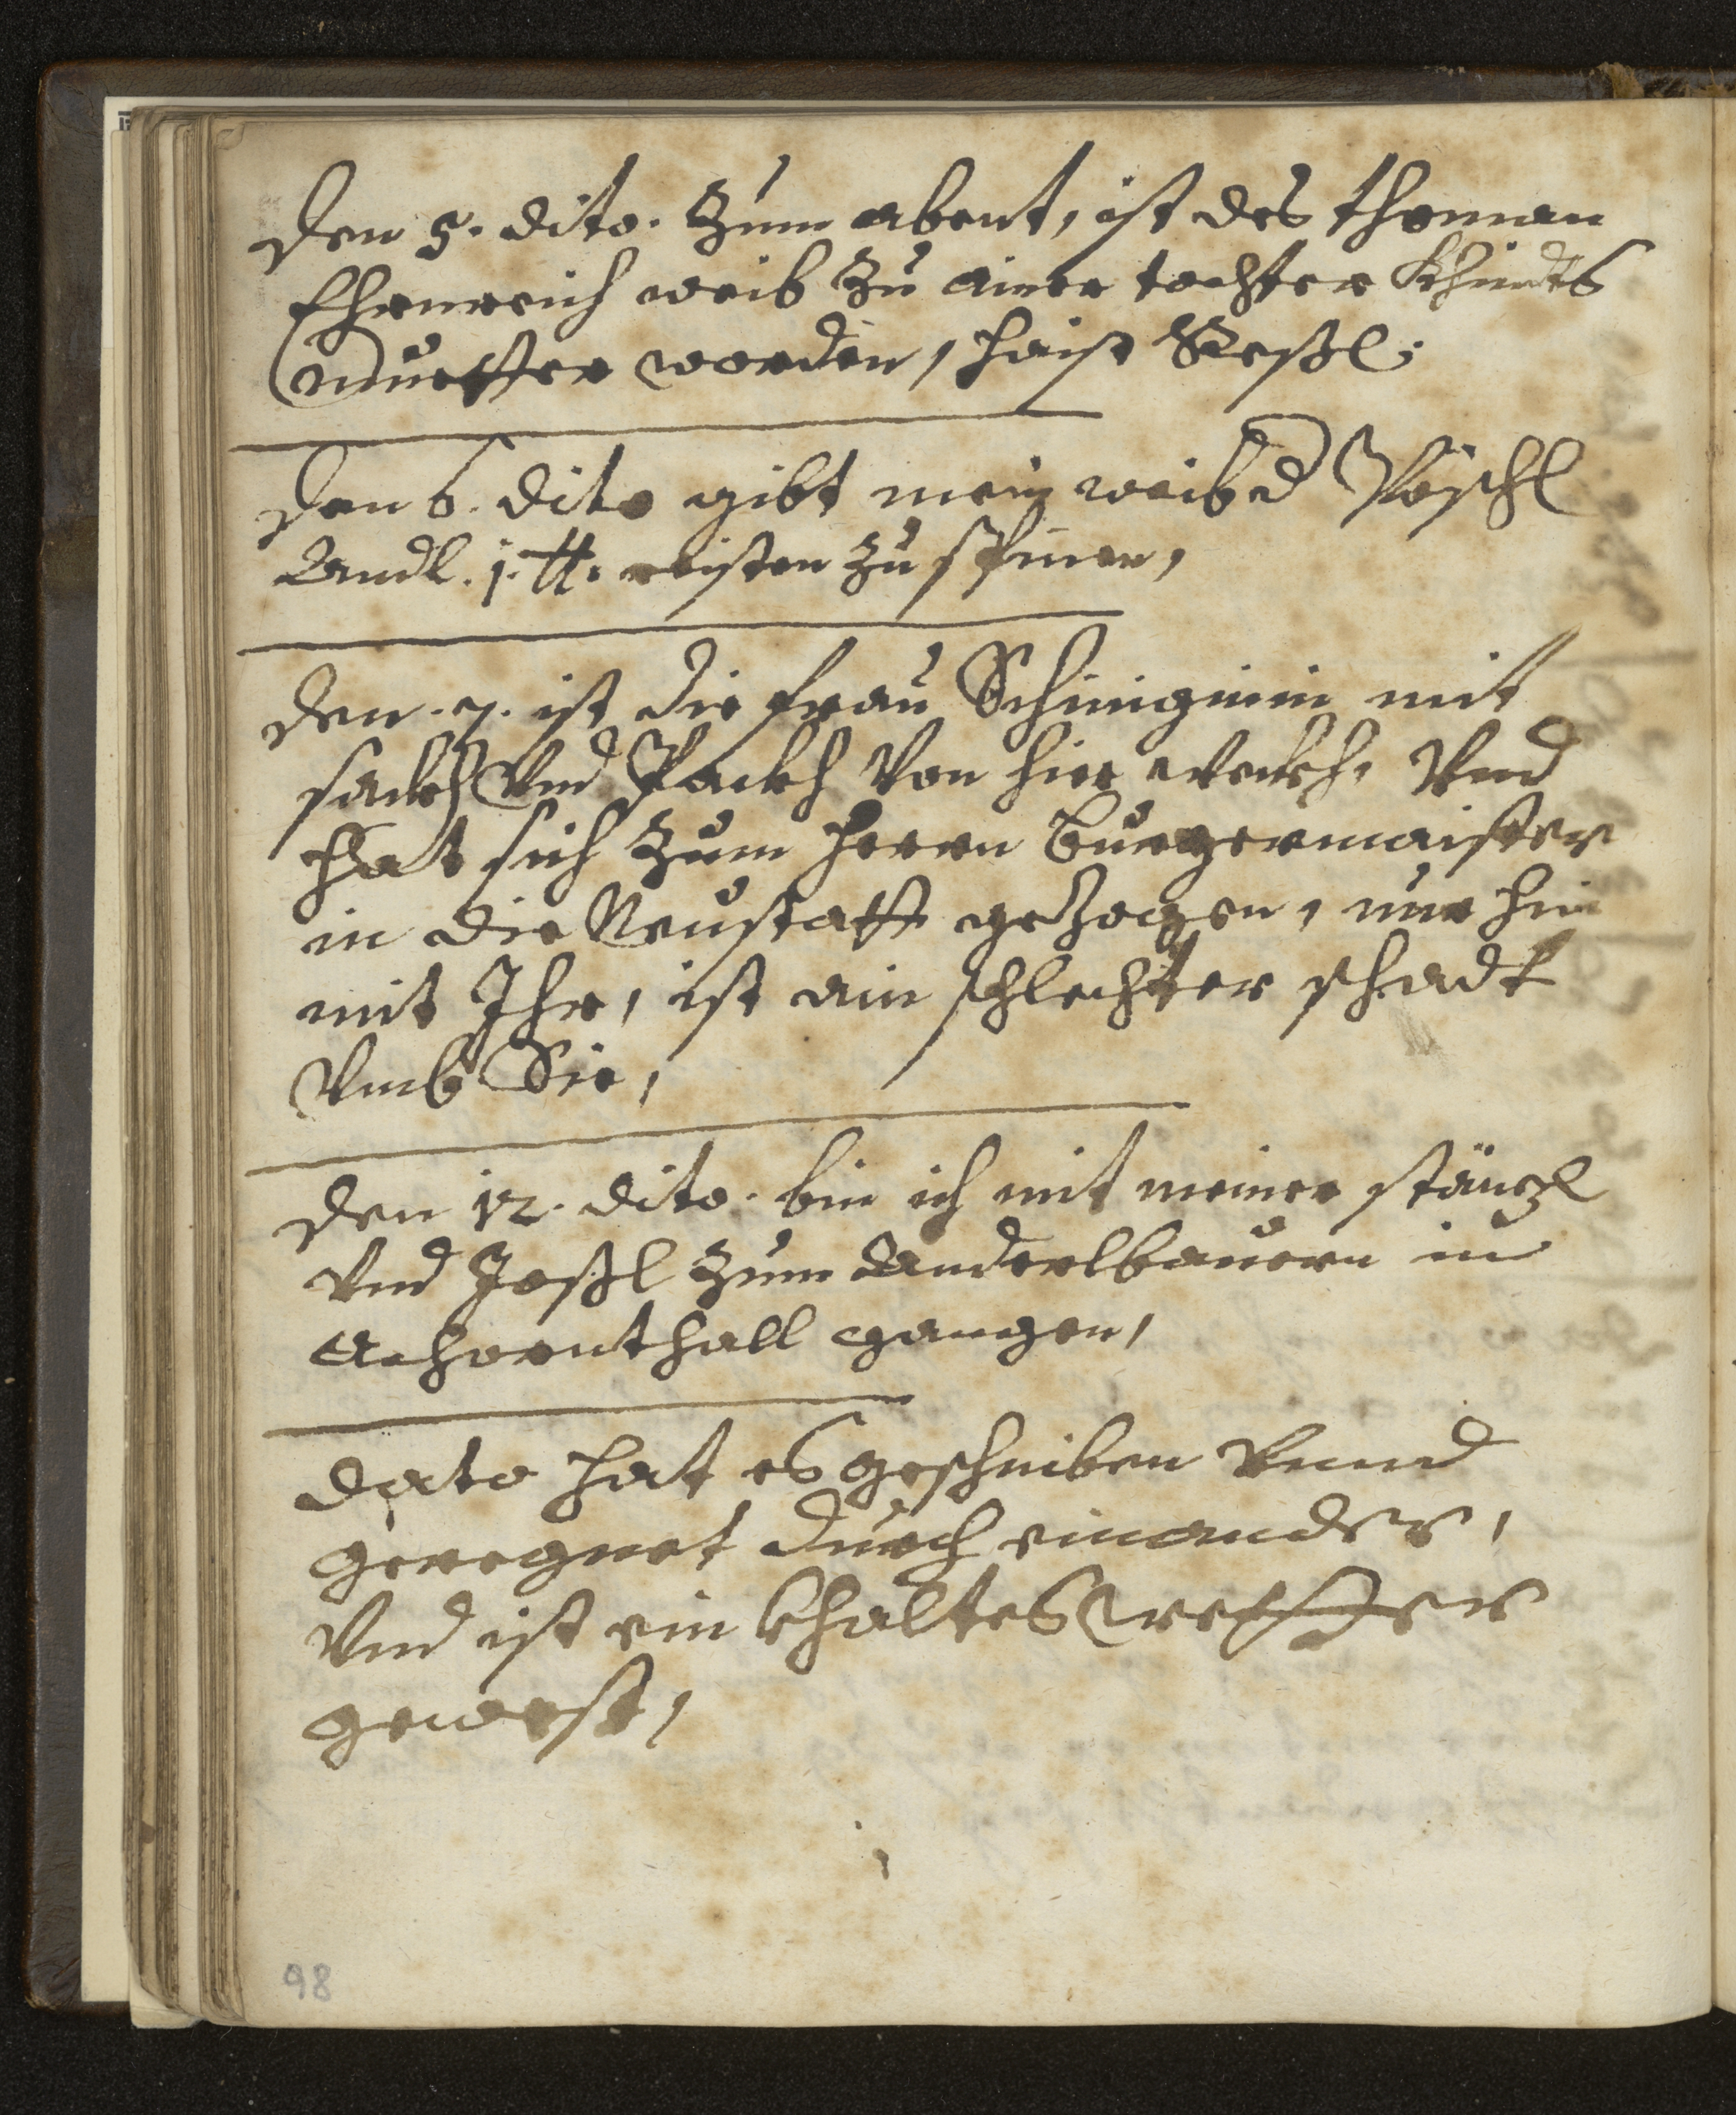 Den 5. dito. Zum abent, ist des thoman
Ehrnreich weib Zu ainer tochter Khindts
Muetter worden, haist Resßl;
Den 6. dito gibt mein weib d Pöschl
Andl. j. ℔. reisten Zu spinen,
Den. 7. ist die frau Schinignin mit
sackh Vnd Packh Von hier wekh, Vnd
hat sich Zum herrn burgermaister
in die Neustatt geZogen, nur hin
mit Ihr, ist ain schlechter schadt
Vmb Sie,
Den 12. dito. bin ich mit meiner stänzl
Vnd Joßl Zum Anderlbauern in
Achornthall gangen,
Dato hat es geschniben Vnnd
geregnet durch einander,
Vnd ist ein khaltes wetter
gewest,
98